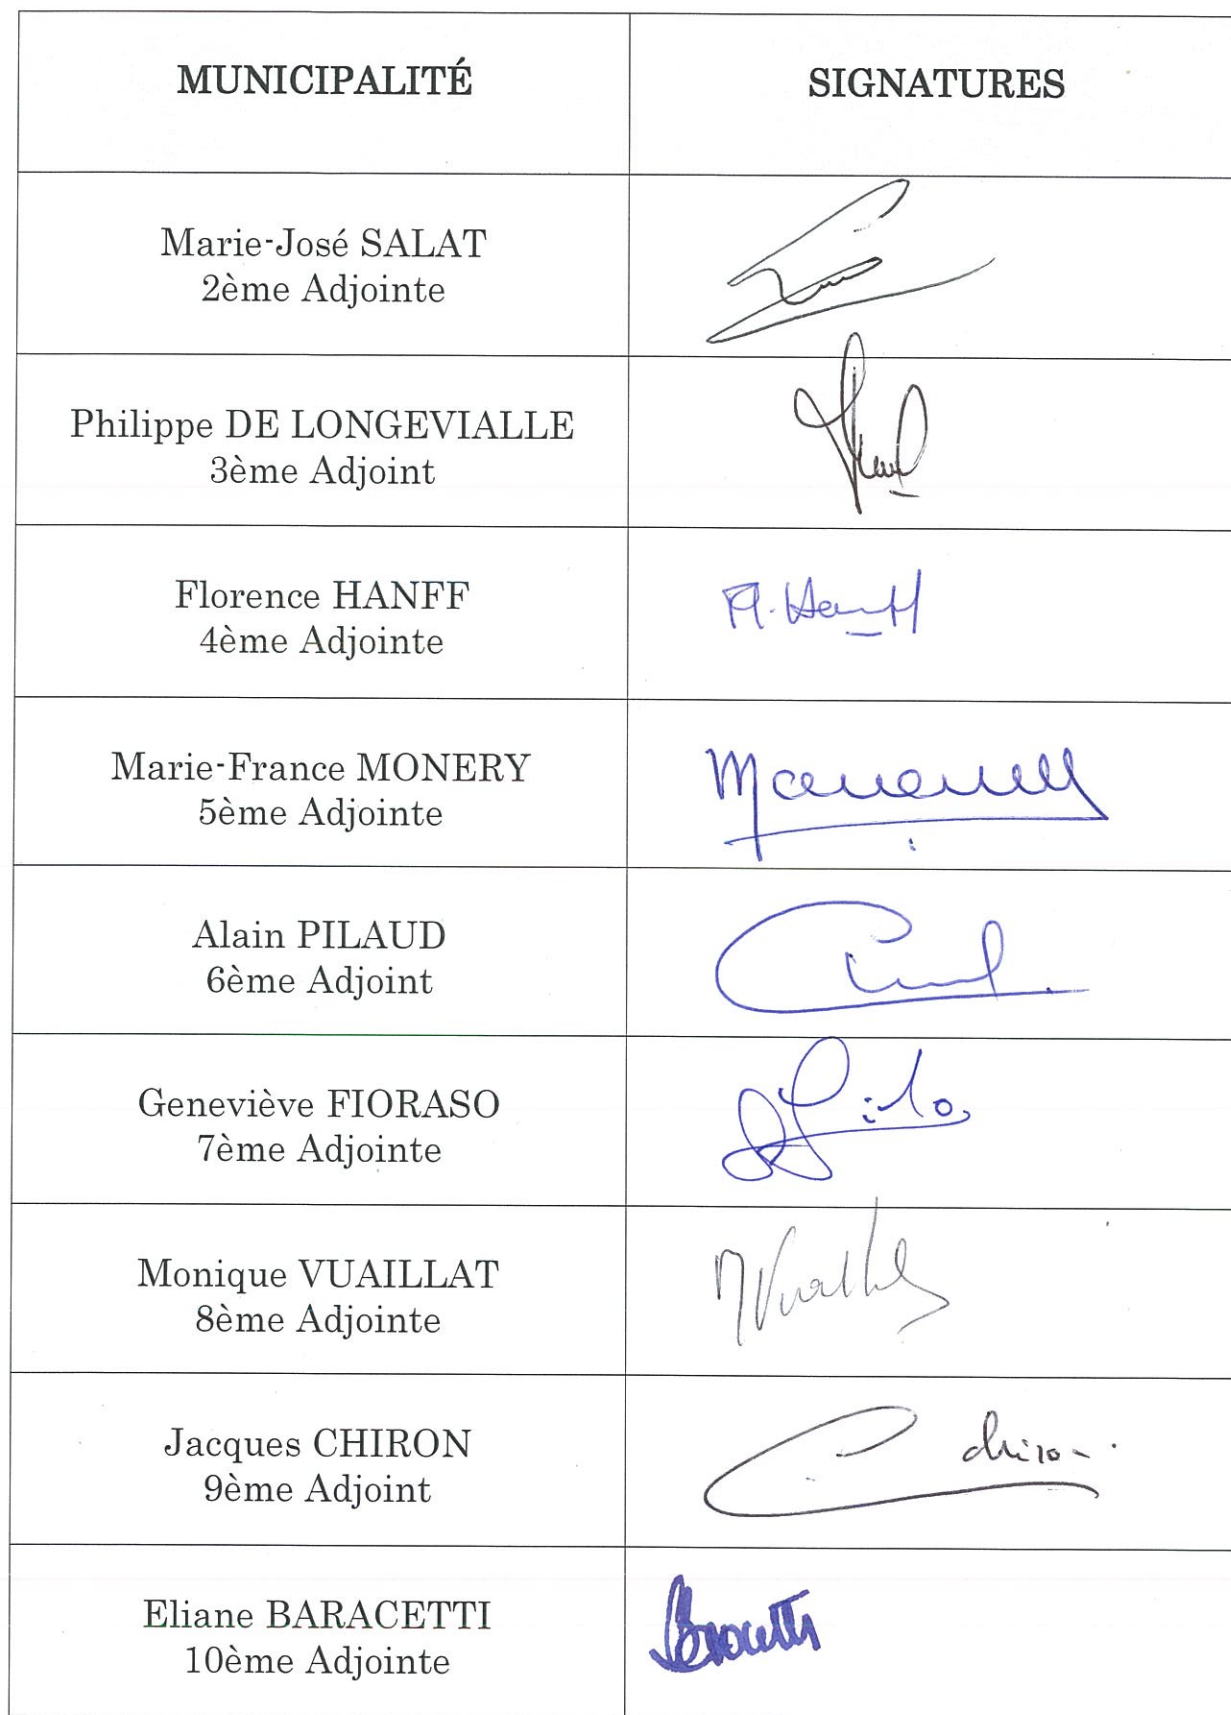 MUNICIPALITÉ
SIGNATURES
Marie-José SALAT
2ème Adjointe
Philippe DE LONGEVIALLE
3ème Adjoint
Florence HANFF
4ème Adjointe
Fl. Hanff
Marie-France MONERY
5ème Adjointe
Alain PILAUD
6ème Adjoint
Geneviève FIORASO
7ème Adjointe
Monique VUAILLAT
8ème Adjointe
Jacques CHIRON
9ème Adjoint
chiron
Eliane BARACETTI
10ème Adjointe